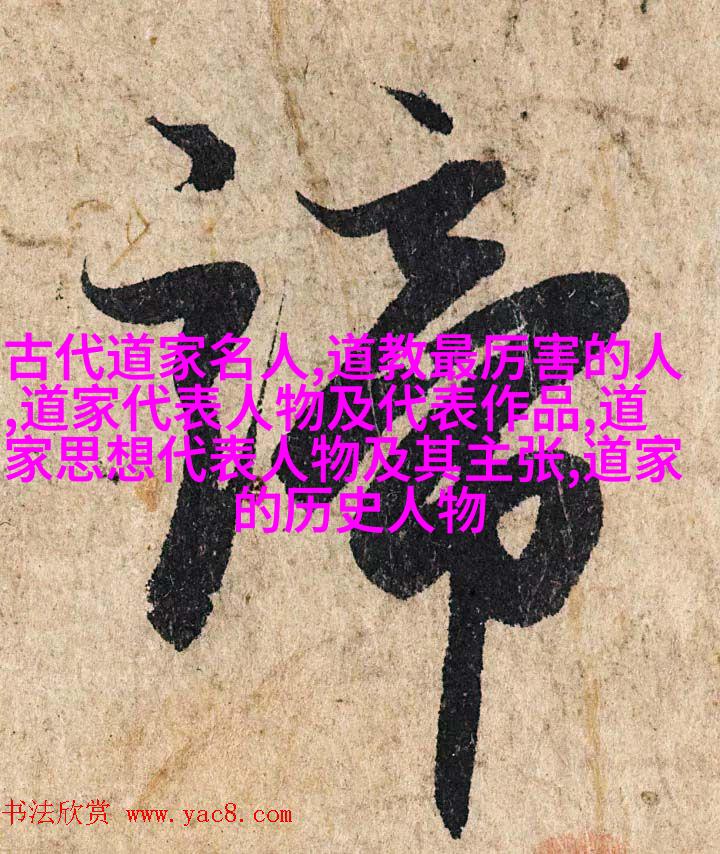 谛
古代道家名人,道教最厉害的人
,道家代表人物及代表作品,道
家思想代表人物及其主张,道家
的历史人物
书法欣赏 www.yac8.com